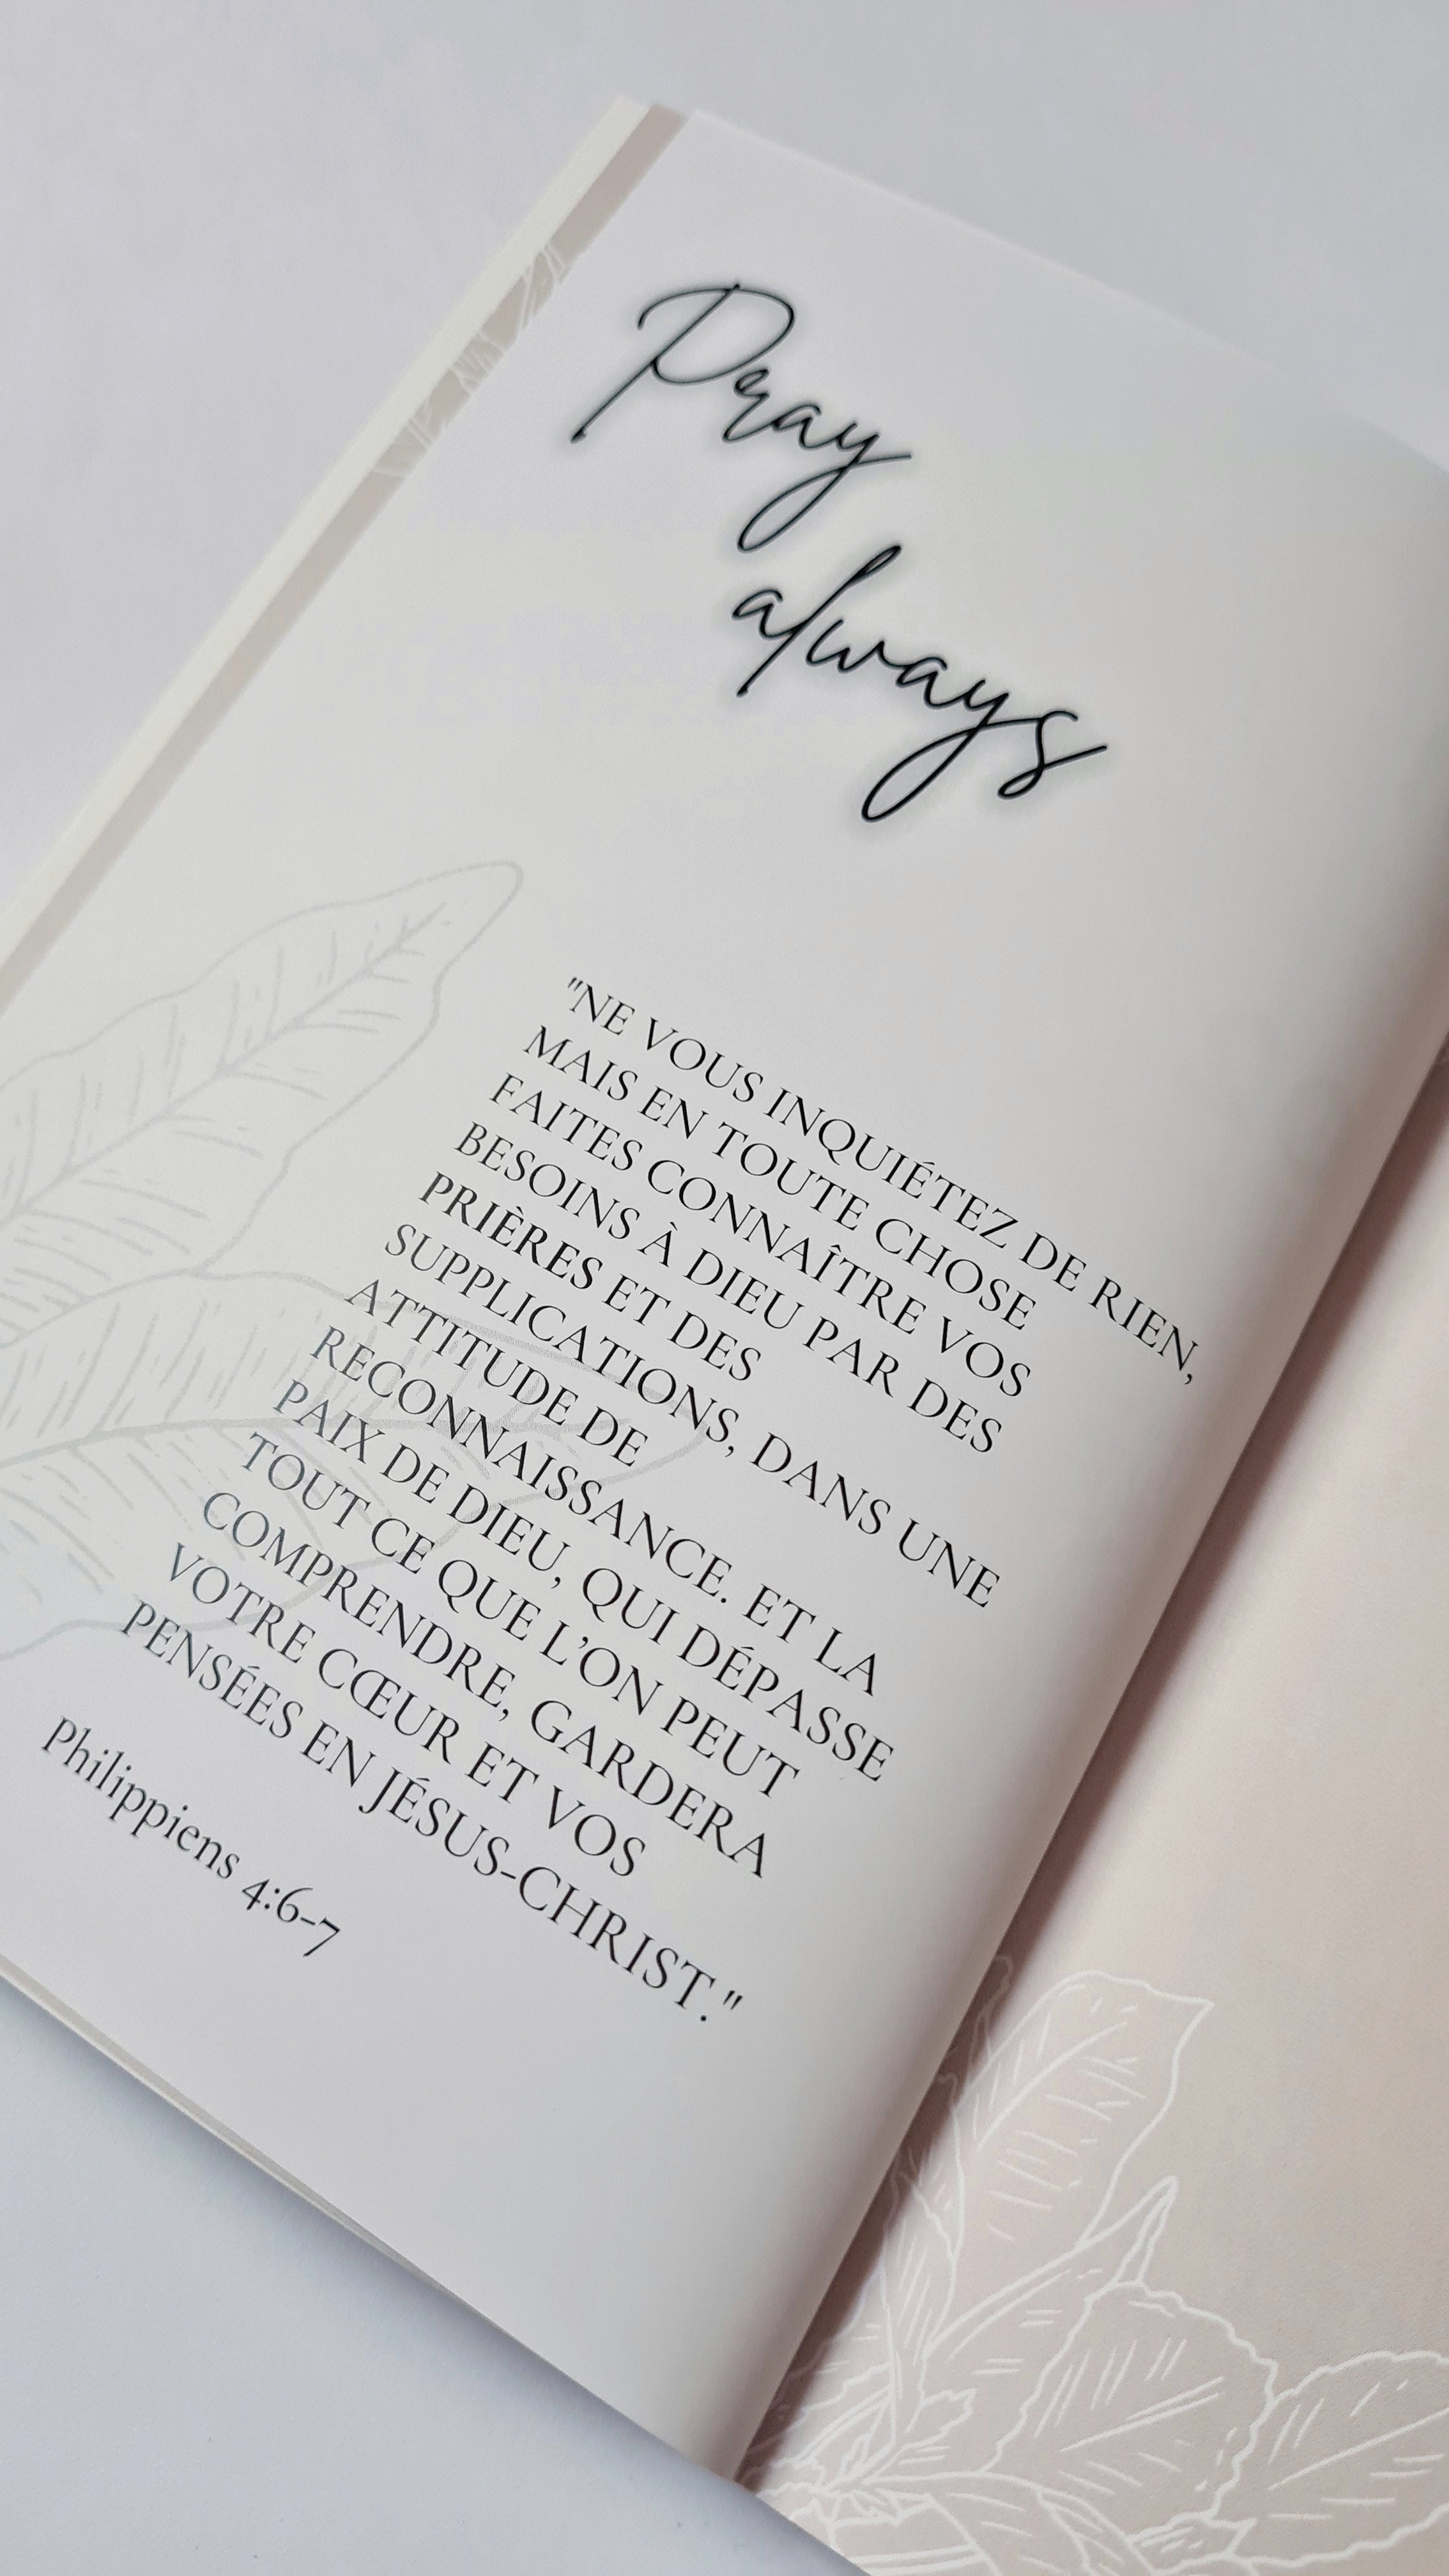 Pray
always
"NE VOUS INQUIÉTEZ DE RIEN,
MAIS EN TOUTE CHOSE
FAITES CONNAÎTRE VOS
BESOINS À DIEU PAR DES
PRIÈRES ET DES
SUPPLICATIONS, DANS UNE
ATTITUDE DE
RECONNAISSANCE. ET LA
PAIX DE DIEU, QUI DÉPASSE
TOUT CE QUE L’ON PEUT
COMPRENDRE, GARDERA
VOTRE CŒUR ET VOS
PENSÉES EN JÉSUS-CHRIST."
Philippiens 4:6-7